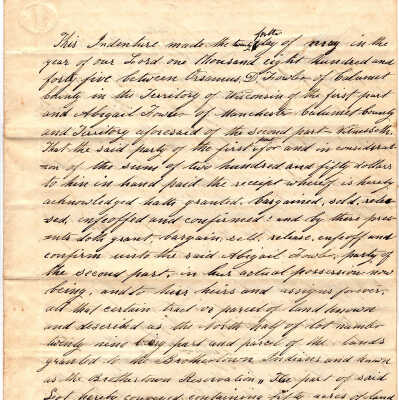 This Indenture made the twenty fifth day of may in the
year of our Lord one thousand eight hundred and
forty five between Erasmus D. Fowler of Calumet
County in the Territory of Wisconsin of the first part
and Abigail Fowler of Manchester Calumet County
and Territory aforesaid of the second part - Witnesseth,
That the said party of the first for and in considerat
ion of the sum of two hundred and fifty dollars
to him in hand paid the receipt whereof is hereby
acknowledged hath granted, bargained, sold, relea
sed, enfeoffed and confirmed: and by these pres
ents doth grant, bargain, sell, release, enfeoff and
confirm unto the said Abigail Fowler, party of
the second part, in her actual possession now
being, and to hers heirs and assigns forever,
all that certain tract or parcel of land known
and described as the North half of lot number
twenty nine part and parcel of the lands
granted to the Brothertown Indians and known
as the Brothertown Reservation, The part of said
Lot hereby conveyed containing fifty acres of land